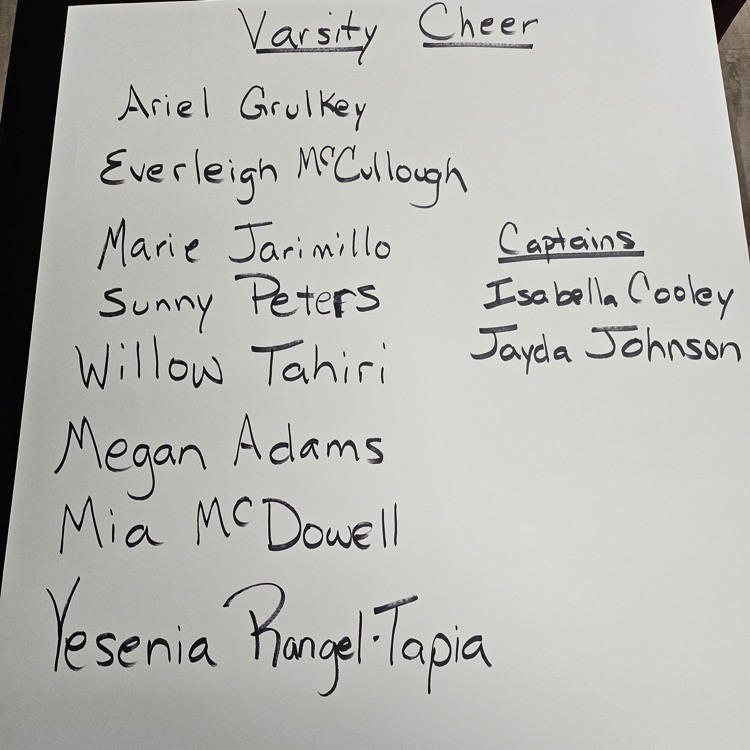 Varsity Cheer
Ariel Grulkey
Everleigh McCullough
Marie Jarimillo
Sunny Peters
Willow Tahiri
Megan Adams
Mia McDowell
Yesenia Rangel-Tapia
Captains
Isabella Cooley
Jayda Johnson